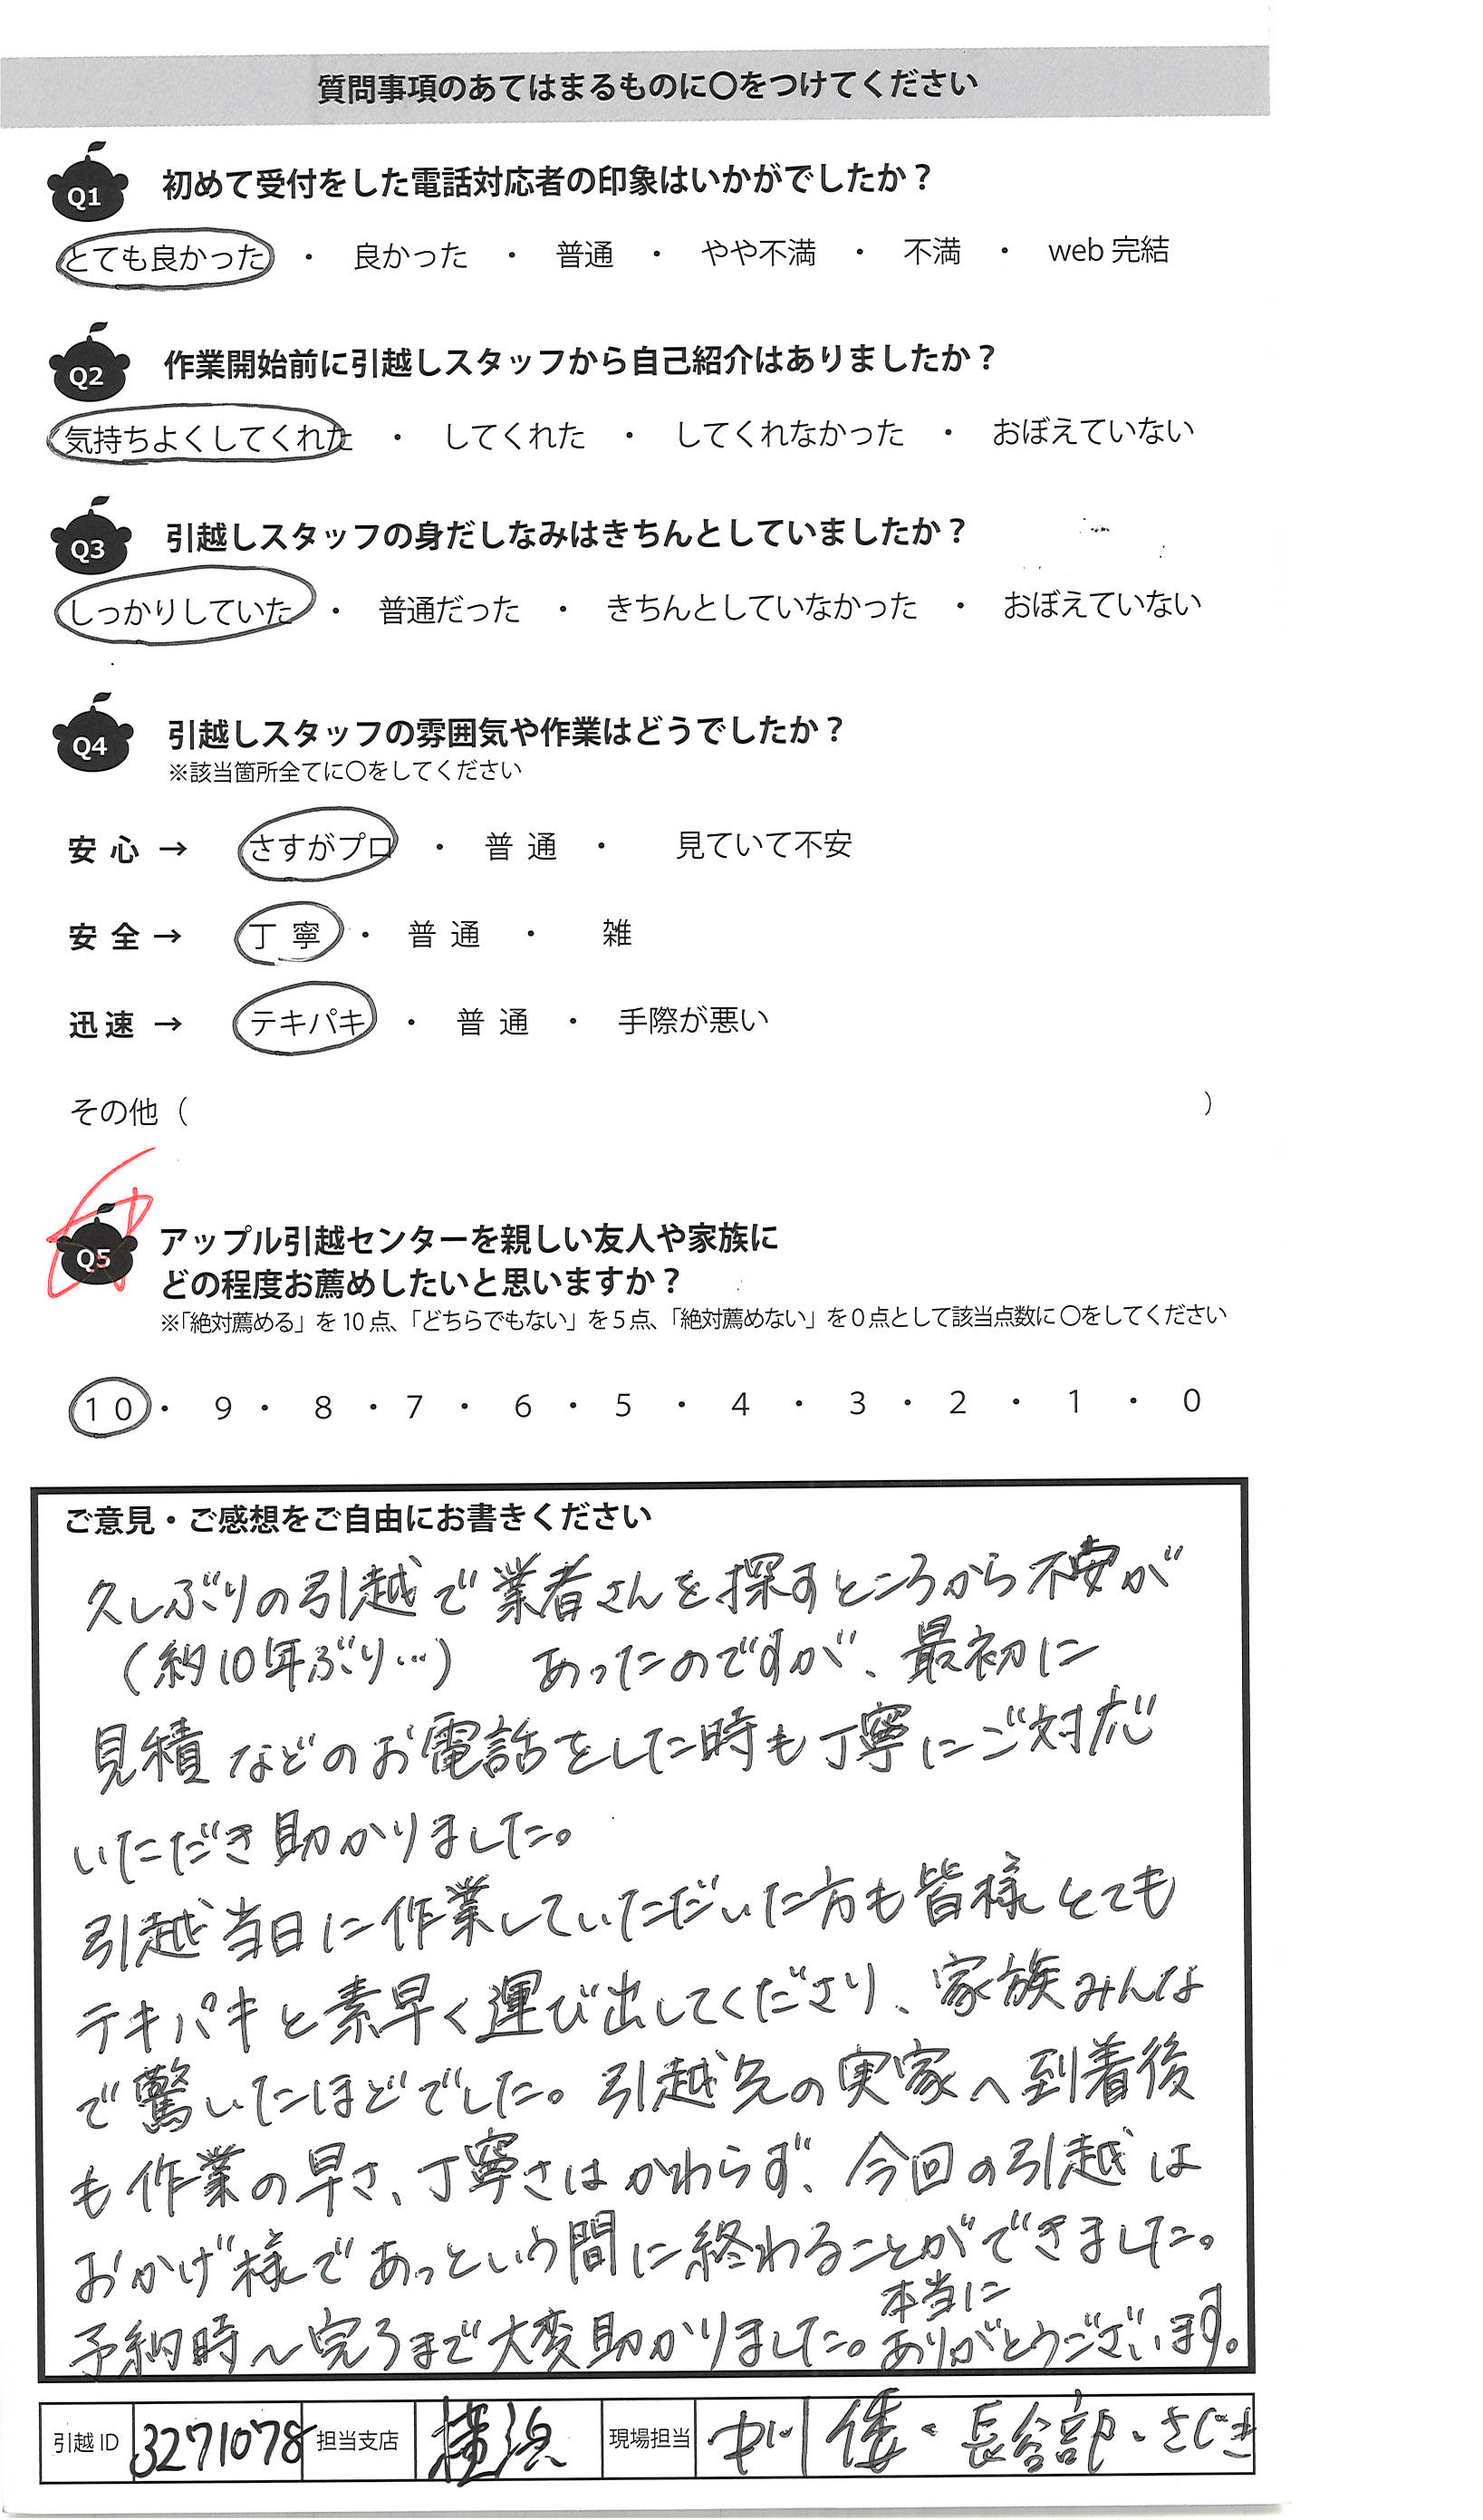 質問事項のあてはまるものに〇をつけてください
Q1 初めて受付をした電話対応者の印象はいかがでしたか？
とても良かった ・ 良かった ・ 普通 ・ やや不満 ・ 不満 ・ web 完結
Q2 作業開始前に引越しスタッフから自己紹介はありましたか？
気持ちよくしてくれた ・ してくれた ・ してくれなかった ・ おぼえていない
Q3 引越しスタッフの身だしなみはきちんとしていましたか？
しっかりしていた ・ 普通だった ・ きちんとしていなかった ・ おぼえていない
Q4 引越しスタッフの雰囲気や作業はどうでしたか？
※該当箇所全てに〇をしてください
安心 → さすがプロ ・ 普通 ・ 見ていて不安
安全 → 丁寧 ・ 普通 ・ 雑
迅速 → テキパキ ・ 普通 ・ 手際が悪い
その他（ ）
Q5 アップル引越センターを親しい友人や家族に
どの程度お薦めしたいと思いますか？
※「絶対薦める」を10点、「どちらでもない」を5点、「絶対薦めない」を0点として該当点数に〇をしてください
10 ・ 9 ・ 8 ・ 7 ・ 6 ・ 5 ・ 4 ・ 3 ・ 2 ・ 1 ・ 0
ご意見・ご感想をご自由にお書きください
久しぶりの引越で業者さんを探すところから不安が
（約10年ぶり…） あったのですが、最初に
見積などのお電話をした時も丁寧にご対応
いただき助かりました。
引越当日に作業していただいた方も皆様とても
テキパキと素早く運び出してくださり、家族みんな
で驚いたほどでした。引越先の実家へ到着後
も作業の早さ、丁寧さはかわらず、今回の引越は
おかげ様であっという間に終わることができました。
本当に
予約時〜完了まで大変助かりました。ありがとうございます。
引越ID 3271078 担当支店 横浜 現場担当 中川 優・長谷部・さじき